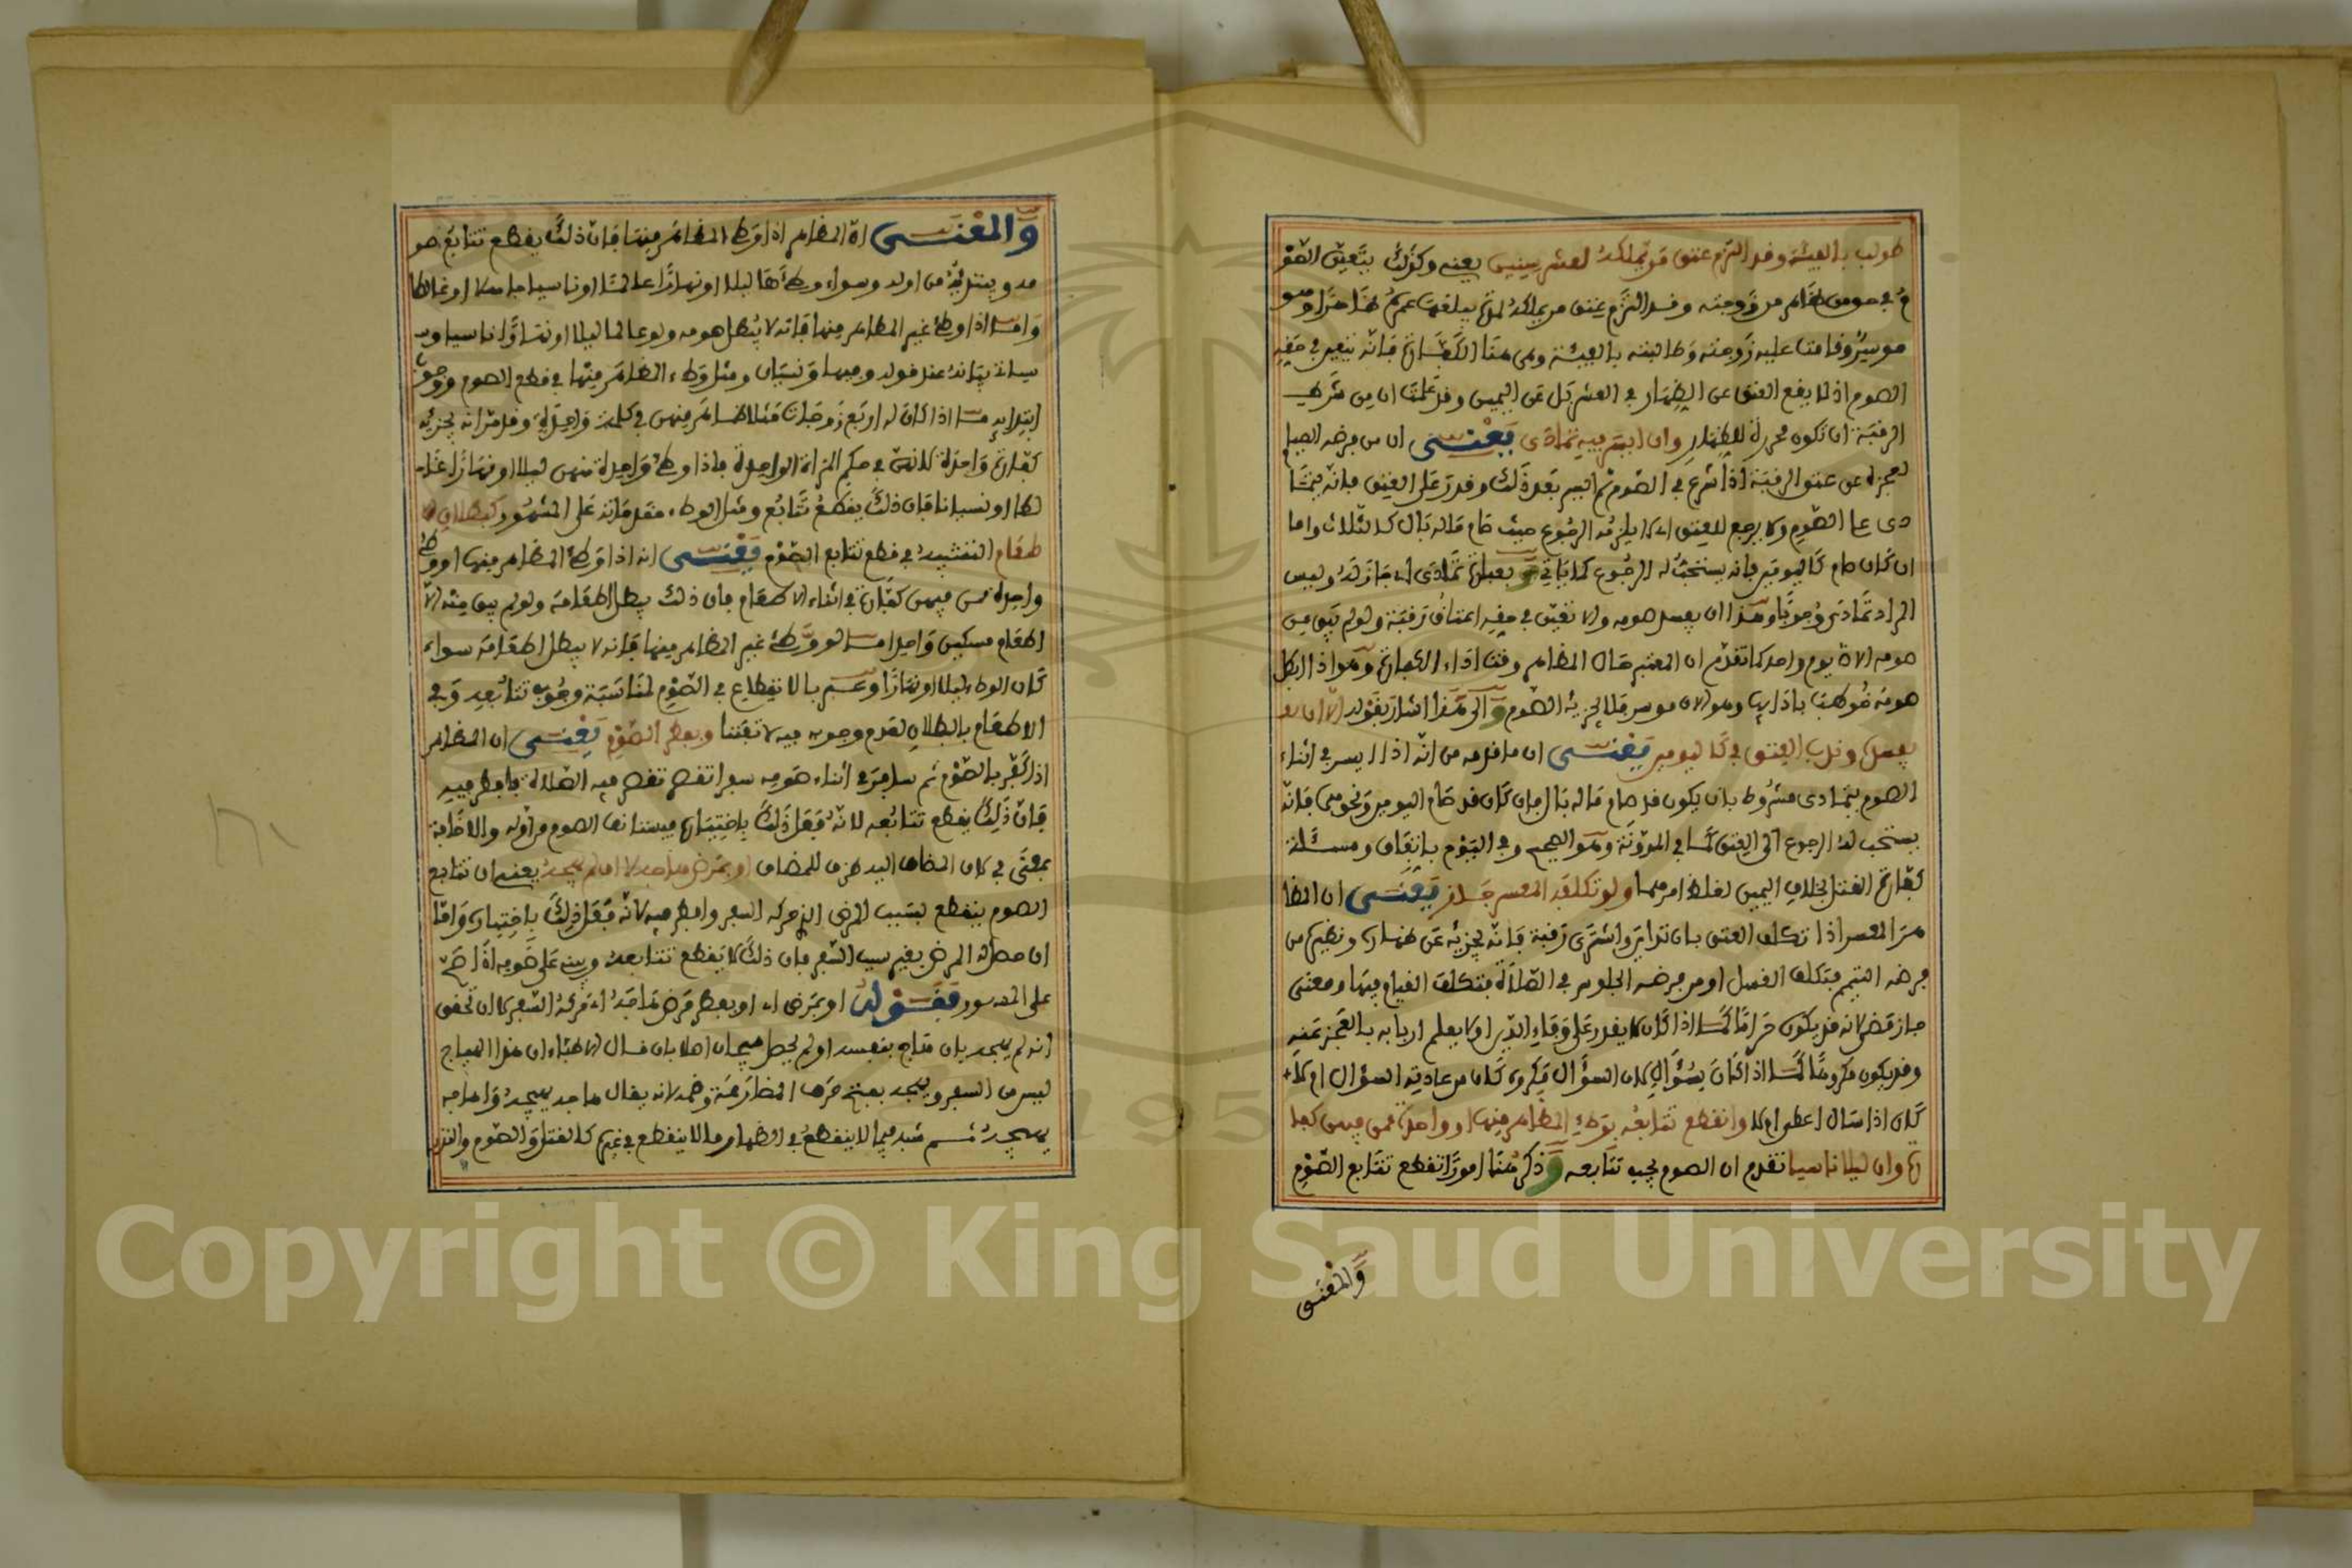 طولب بالفيئة وقد التزم عتق من يملكه لعشر سنين يعني وكذلك يتعين الصو
م في حق من ظاهر من زوجته وقد التزم عتق من يملكه لمدة يبلغها عمره ظاهرا وهو
موسر وقامت عليه زوجته وطالبته بالفيئة وهي هنا الكفارة فانه يتعين في حقه
الصوم اذ لا يقع العتق عن الظهار في العشر بل عن اليمين وقد علمت ان من شرط
الرقبة ان تكون محررة للظهار وان ايسر فيه تمادى يعني ان من فرضه الصيام
لعجزه عن عتق الرقبة اذا شرع في الصوم ثم ايسر بعد ذلك وقدر على العتق فانه يتما
دى على الصوم ولا يرجع للعتق اي لا يلزمه الرجوع حيث صام ماله بال كالثلاث واما
ان كان صام كاليومين فانه يستحب له الرجوع كما ياتي و بعبارة تمادى اي جاز له وليس
المراد تمادى وجوبا وهذا ان يفسد صومه والا تعين في حقه اعتاق رقبة ولو لم يبق من
صومه الا يوم واحد كما تقدم ان المعتبر حال المظاهر وقت اداء الكفارة وهو اذا ابطل
صومه خوطب باداءها وهو الان موسر فلا يجزيه الصوم و الى هذا اشار بقوله الا ان
يفسده وندب العتق في كاليومين يعني ان ما قدمه من انه اذا ايسر في اثناء
الصوم يتمادى مشروط بان يكون قد صام ماله بال فان كان قد صام اليومين ونحوهما فانه
يستحب له الرجوع الى العتق كما في المدونة وهو الصحيح وفي اليوم باتفاق ومسئلة
كفارة القتل بخلاف اليمين لغلظ امرهما ولو تكلفه المعسر جاز يعني ان المظا
هر المعسر اذا تكلف العتق بان تداين واشترى رقبة فانه يجزيه عن ظهاره ونظيره من
فرضه التيمم فتكلف الغسل او من فرضه الجلوس في الصلاة فتكلف القيام فيها ومعنى
جاز مضى لانه قد يكون حراما كما اذا كان لا يقدر على وفاء الدين او لا يعلم اربابه بالعجز عنه
وقد يكون مكروها كما اذا كان بسؤال لان السؤال مكروه كان من عادته السؤال ام لا
كان اذا سال اعطي ام لا وانقطع تتابعه بوطء المظاهر منها او واحدة ممن فيهن كفا
رة وان ليلا ناسيا تقدم ان الصوم يجب تتابعه و ذكر هنا امورا تقطع تتابع الصوم
والمعنى
والمعنى ان المظاهر اذا وطئ المظاهر منها فان ذلك يقطع تتابع صو
مه ويبتديه من اوله وسواء وطئها ليلا او نهارا عالما او ناسيا جاهلا او غالطا
واما اذا وطئ غير المظاهر منها فانه لا يبطل صومه ولو عالما ليلا او نهارا ناسيا و
سياتي بيانه عند قوله وفيها ونسيان ومثل وطء المظاهر منها في قطع الصوم ووجوب
ابتدايه ما اذا كان له اربع زوجات مثلا ظاهر منهن في كلمة واحدة وقد مر انه يجزيه
كفارة واحدة لانهن في حكم المراة الواحدة فاذا وطئ واحدة منهن ليلا او نهارا عا
لما او نسيانا فان ذلك يقطع تتابع ومثل الوطء مقدماته على المشهور كبطلان الا
طعام التشبيه في قطع تتابع الصوم يعني انه اذا وطئ المظاهر منها او وطئ
واحدة ممن فيهن كفارة في اثناء الاطعام فان ذلك يبطل اطعامه ولو لم يبق منه الا
اطعام مسكين واحد اما لو وطئ غير المظاهر منها فانه لا يبطل اطعامه سواء
كان الوطء ليلا او نهارا وعبر بالانقطاع في الصوم لمناسبة وجوب تتابعه وفي
الاطعام بالبطلان لعدم وجوبه فيه لا تفننا وبفطر السفر يعني ان المظاهر
اذا كفر بالصوم ثم سافر في اثناء صومه سفرا تقصر فيه الصلاة فافطر فيه
فان ذلك يقطع تتابعه لانه فعل ذلك باختياره فيستانف الصوم من اوله والاضافة
بمعنى في لان المضاف اليه ظرف للمضاف او بمرض هاجه لا ان لم يهجه يعني ان تتابع
الصوم ينقطع بسبب المرض الذي حركه السفر وافطر فيه لانه فعل ذلك باختياره واما
ان حصل له المرض بغير سبب السفر فان ذلك لا يقطع تتابعه ويبني على صومه اذا صح
على المشهور فقوله او بمرض اي او بفطر مرض هاجه اي حركه السفر لا ان تحقق
انه لم يهجه بان هاج بنفسه او لم يحصل هيجان اصلا بان قال الاطباء ان هذا الهياج
ليس من السفر ويهجه بفتح حرف المضارعة وضمه لانه يقال هاجه يهيجه واهاجه
يهيجه ثم شبه فيما لا ينقطع في الظهار ما لا ينقطع في غيره كالقتل والصوم والنذر